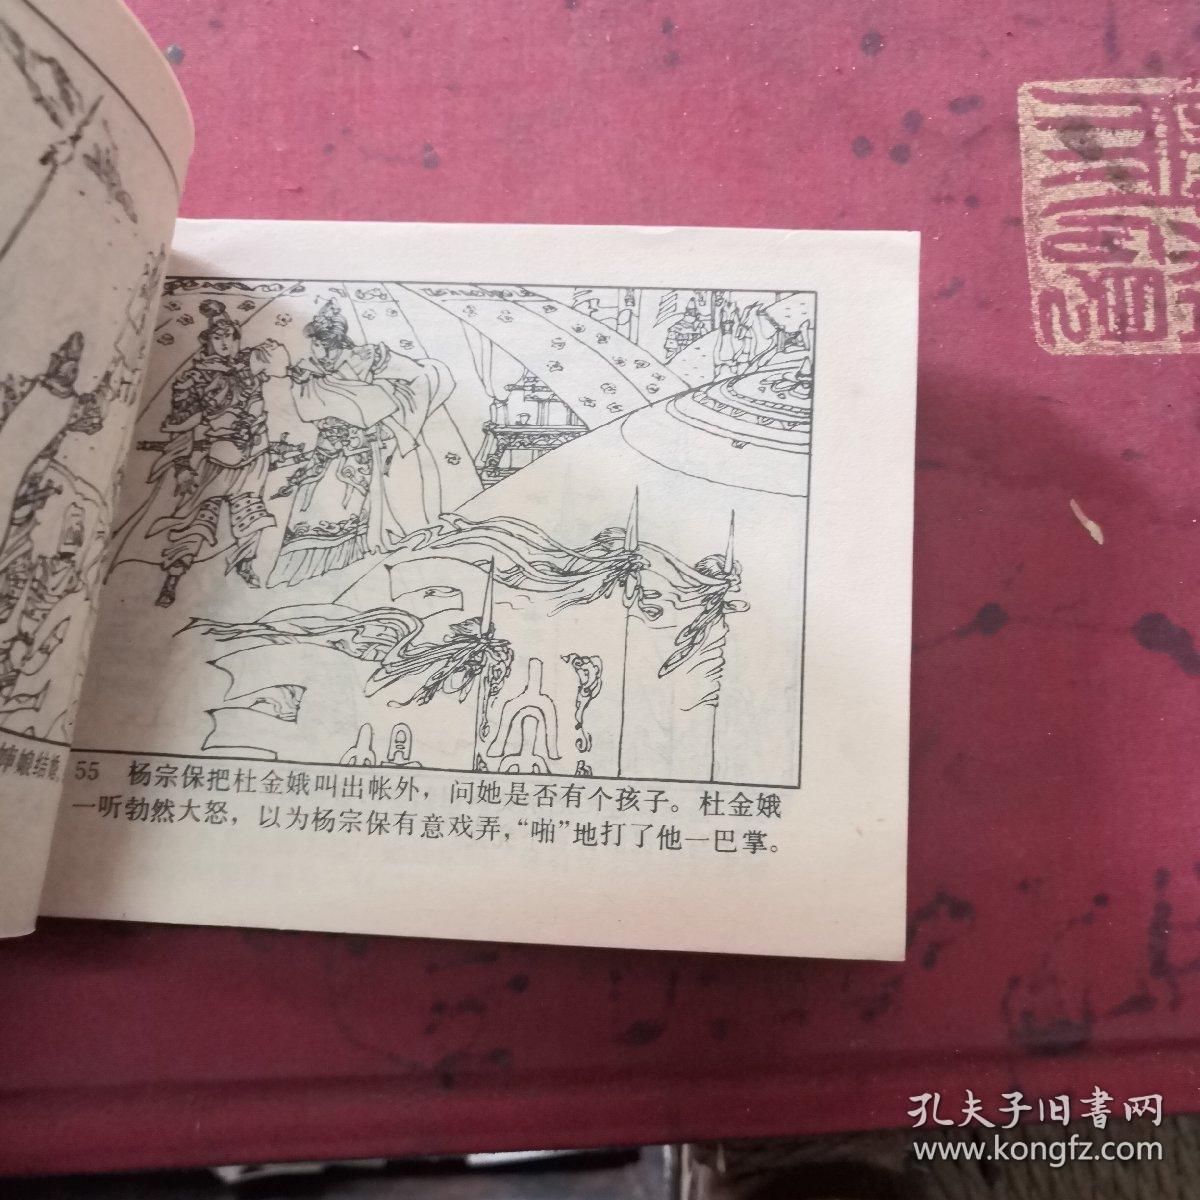 婶娘结婚。
55 杨宗保把杜金娥叫出帐外，问她是否有个孩子。杜金娥
一听勃然大怒，以为杨宗保有意戏弄，“啪”地打了他一巴掌。
孔夫子旧书网
www.kongfz.com